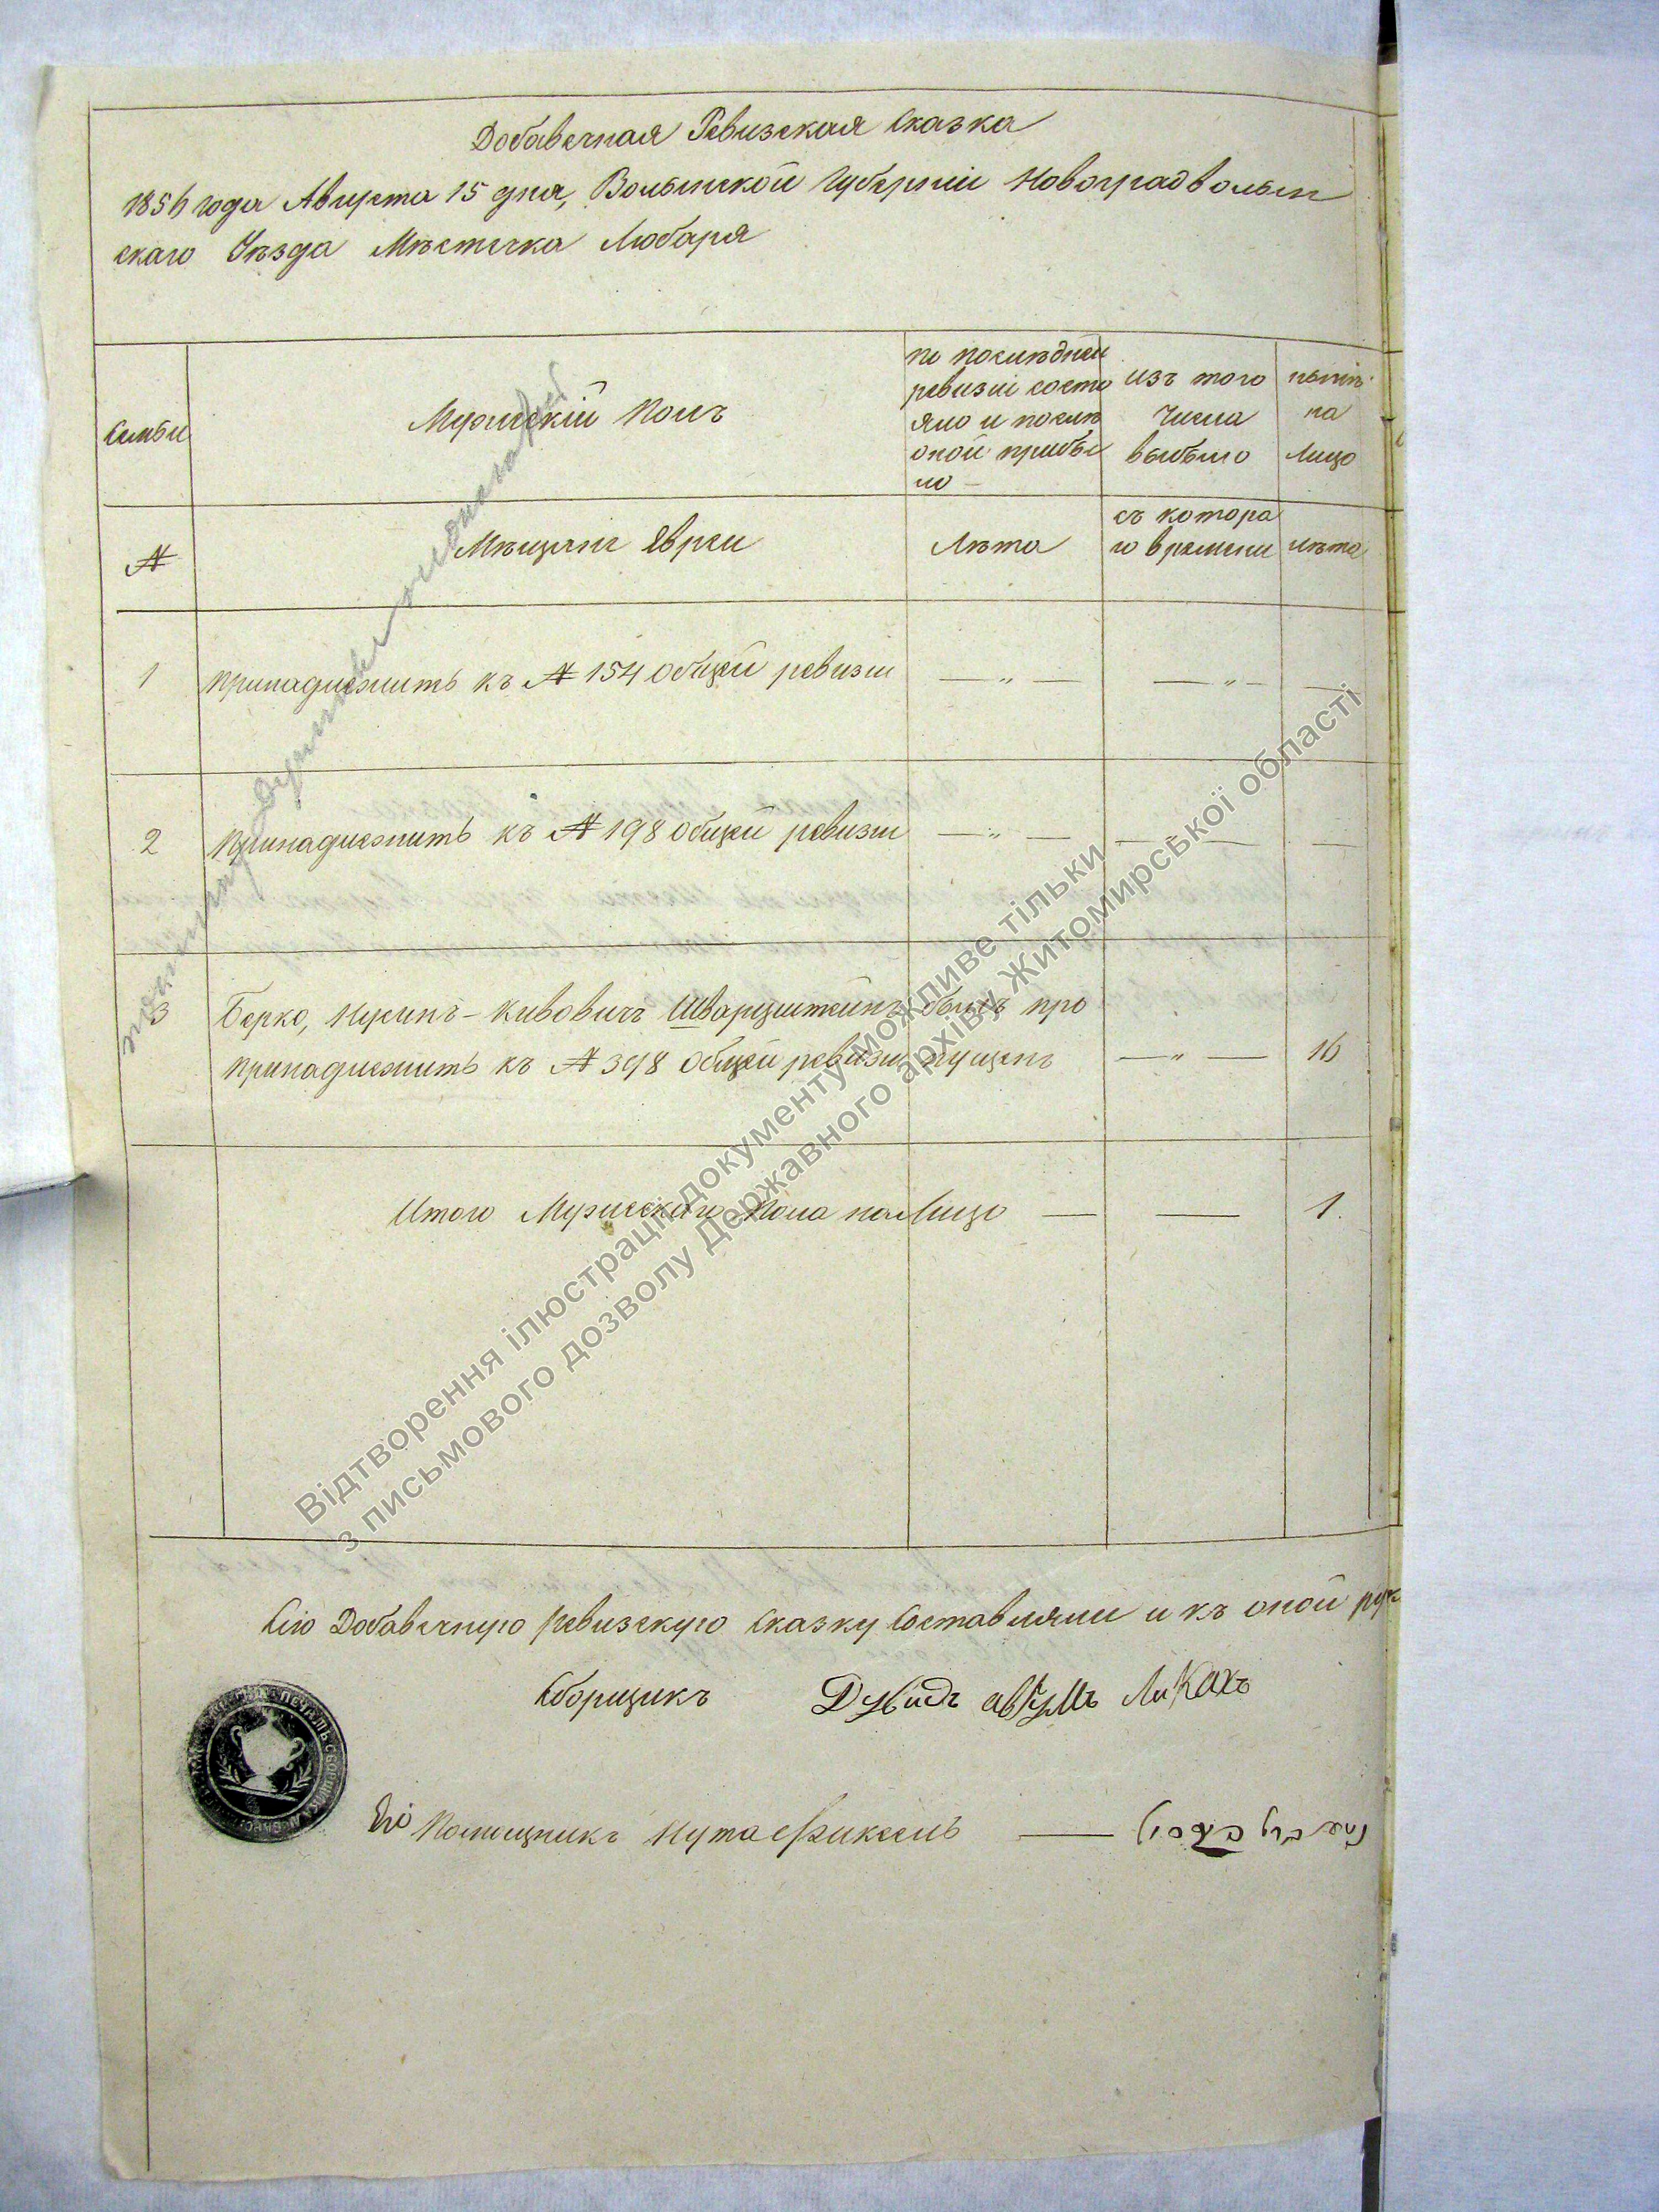 Добавочная Ревизская Сказка
1856 года Августа 15 дня, Волынской Губерніи Новоградволын
скаго Уѣзда Мѣстечка Любаря
Семьи
Мужескій Полъ
по послѣдней
ревизіи состо
яло и послѣ
оной прибы
ло —
изъ того
числа
выбыло
нынѣ
на
лицо
№
Мѣщане Евреи
Лѣта
съ котора
го времени
лѣта
1 принадлежитъ къ № 154 общей ревизіи — „ — — „ — —
2 принадлежитъ къ № 198 общей ревизіи — „ — — — —
3 Берко, Нусинъ-Кивовичъ Шварцштейнъ былъ про
принадлежитъ къ № 398 общей ревизіи пущенъ — „ — 16
Итого Мужескаго Пола на Лицо — — 1.
Сію Добавочную Ревизскую Сказку Составляли и къ оной рук
Сборщикъ Дувидъ Аврумъ Ликахъ
Его Помощникъ Нута Фиксель —
Відтворення ілюстрації документу можливе тільки
з письмового дозволу Державного архіву Житомирської області